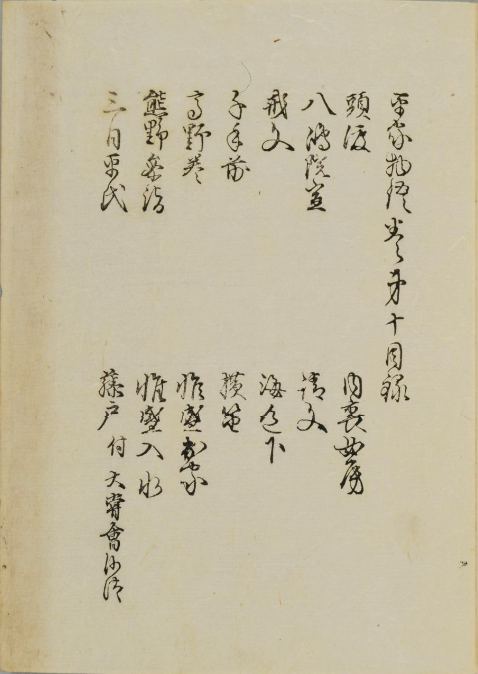 平家物語巻第十目録
頭渡 内裏女房
八嶋院宣 請文
戒文 海道下
千手前 横笛
高野巻 惟盛出家
熊野参詣 惟盛入水
三日平氏 藤戸 付大嘗會沙汰